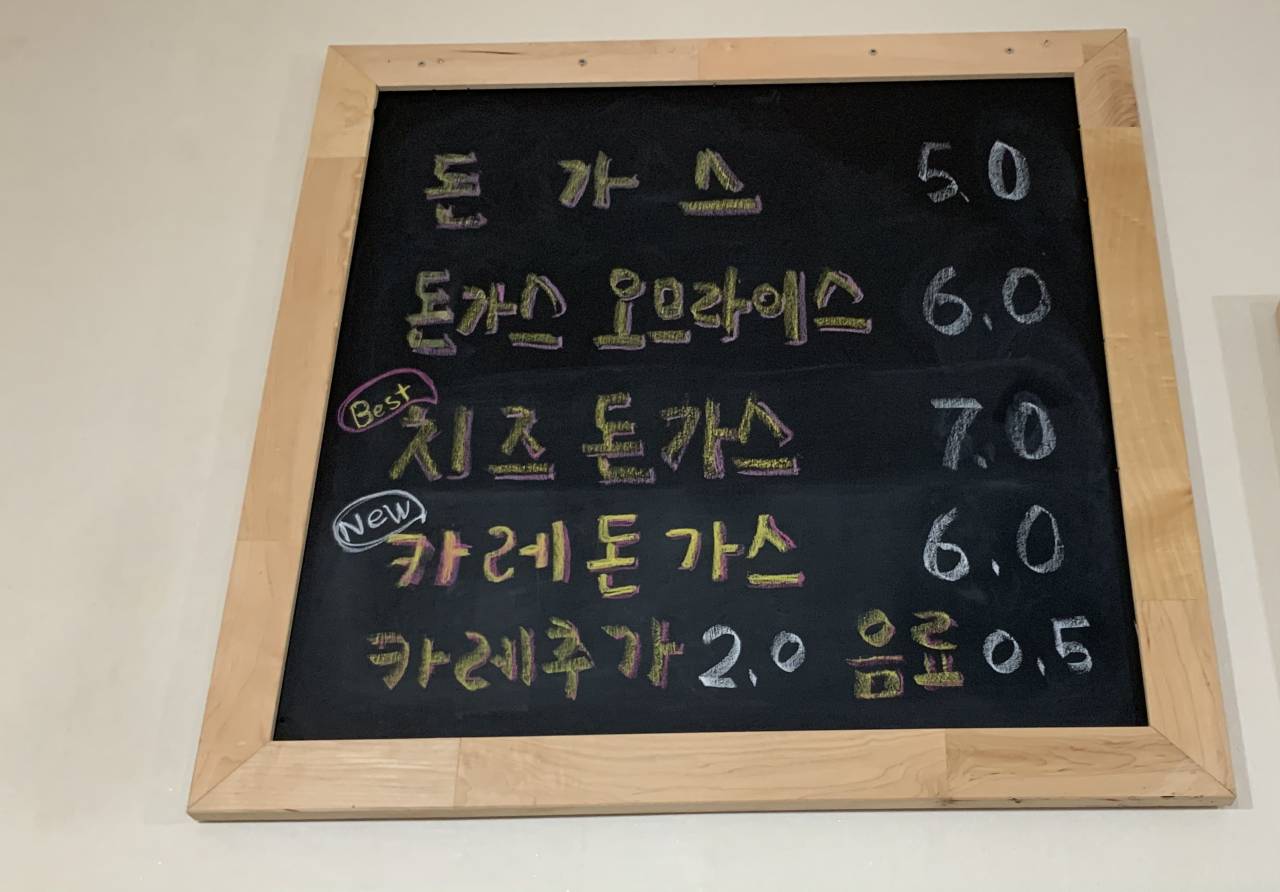 돈 가 스 5.0
돈가스 오므라이스 6.0
Best
치즈 돈가스 7.0
New
카레돈가스 6.0
카레추가 2.0 음료 0.5